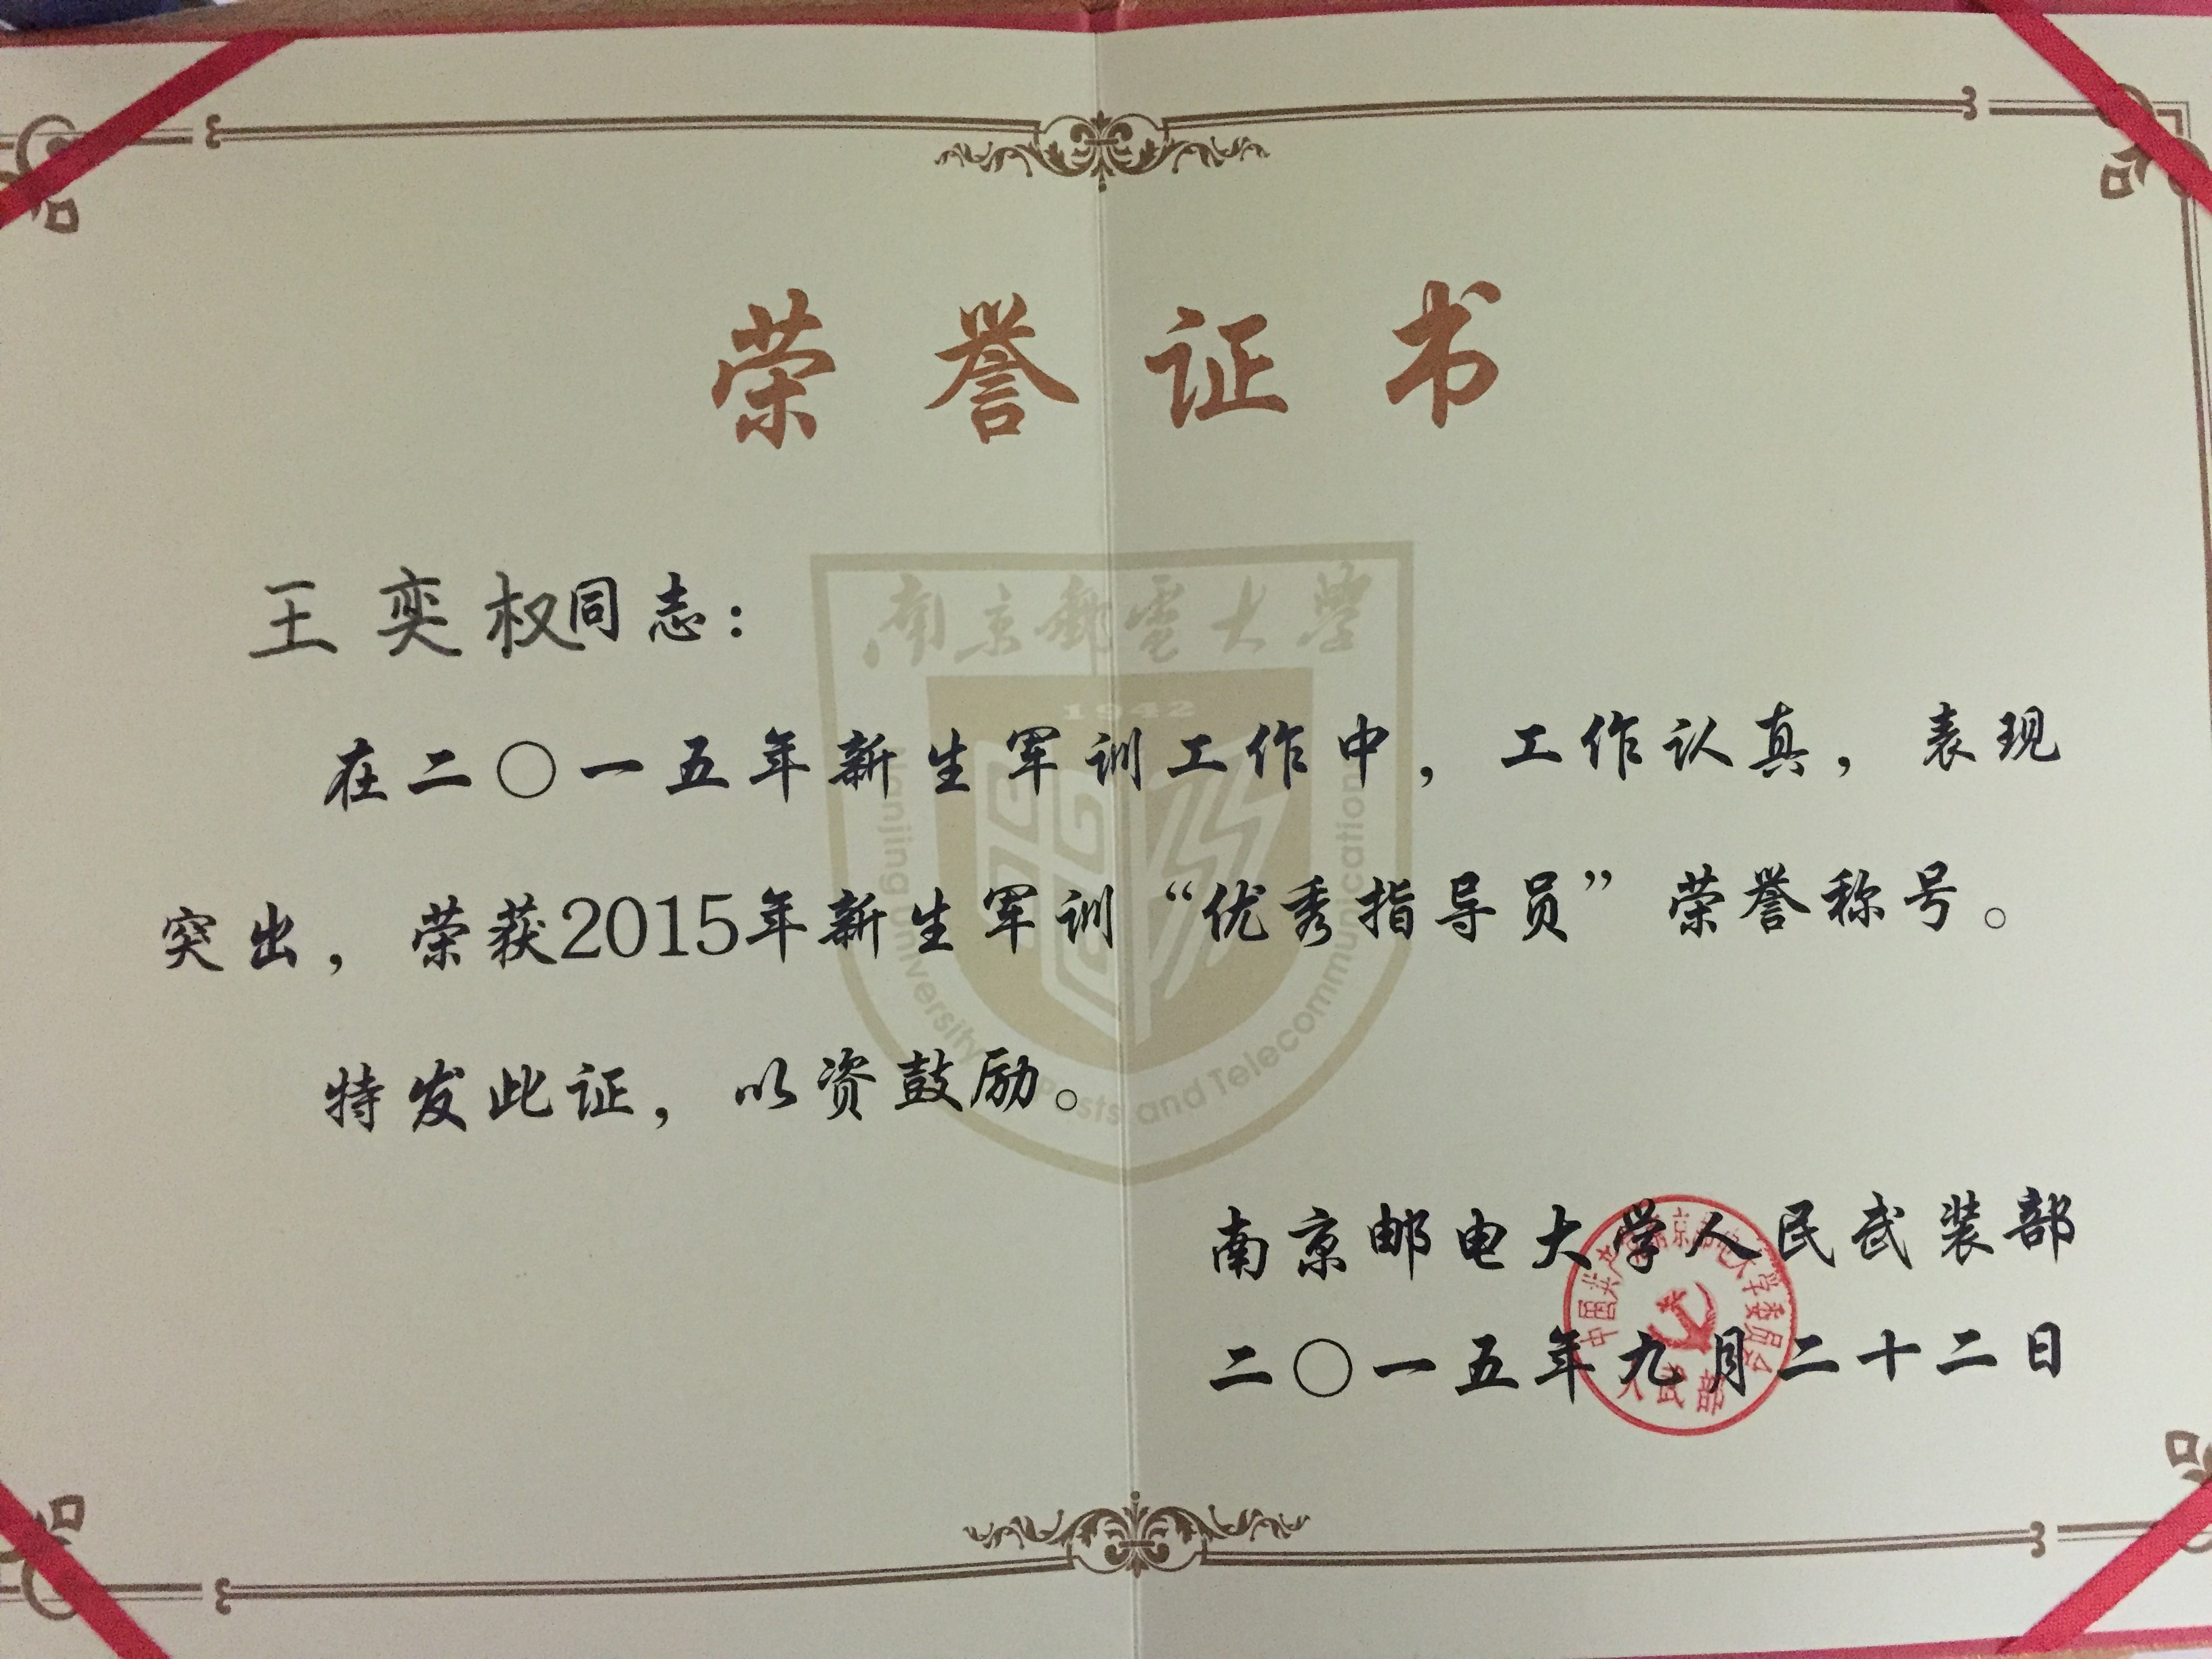 荣誉证书
王奕权同志：
南京邮电大学
1942
在二〇一五年新生军训工作中，工作认真，表现
突出，荣获2015年新生军训“优秀指导员”荣誉称号。
特发此证，以资鼓励。
Nanjing University Posts and Telecommunication
南京邮电大学人民武装部
二〇一五年九月二十二日
中国共产党南京邮电大学委员会
人武部